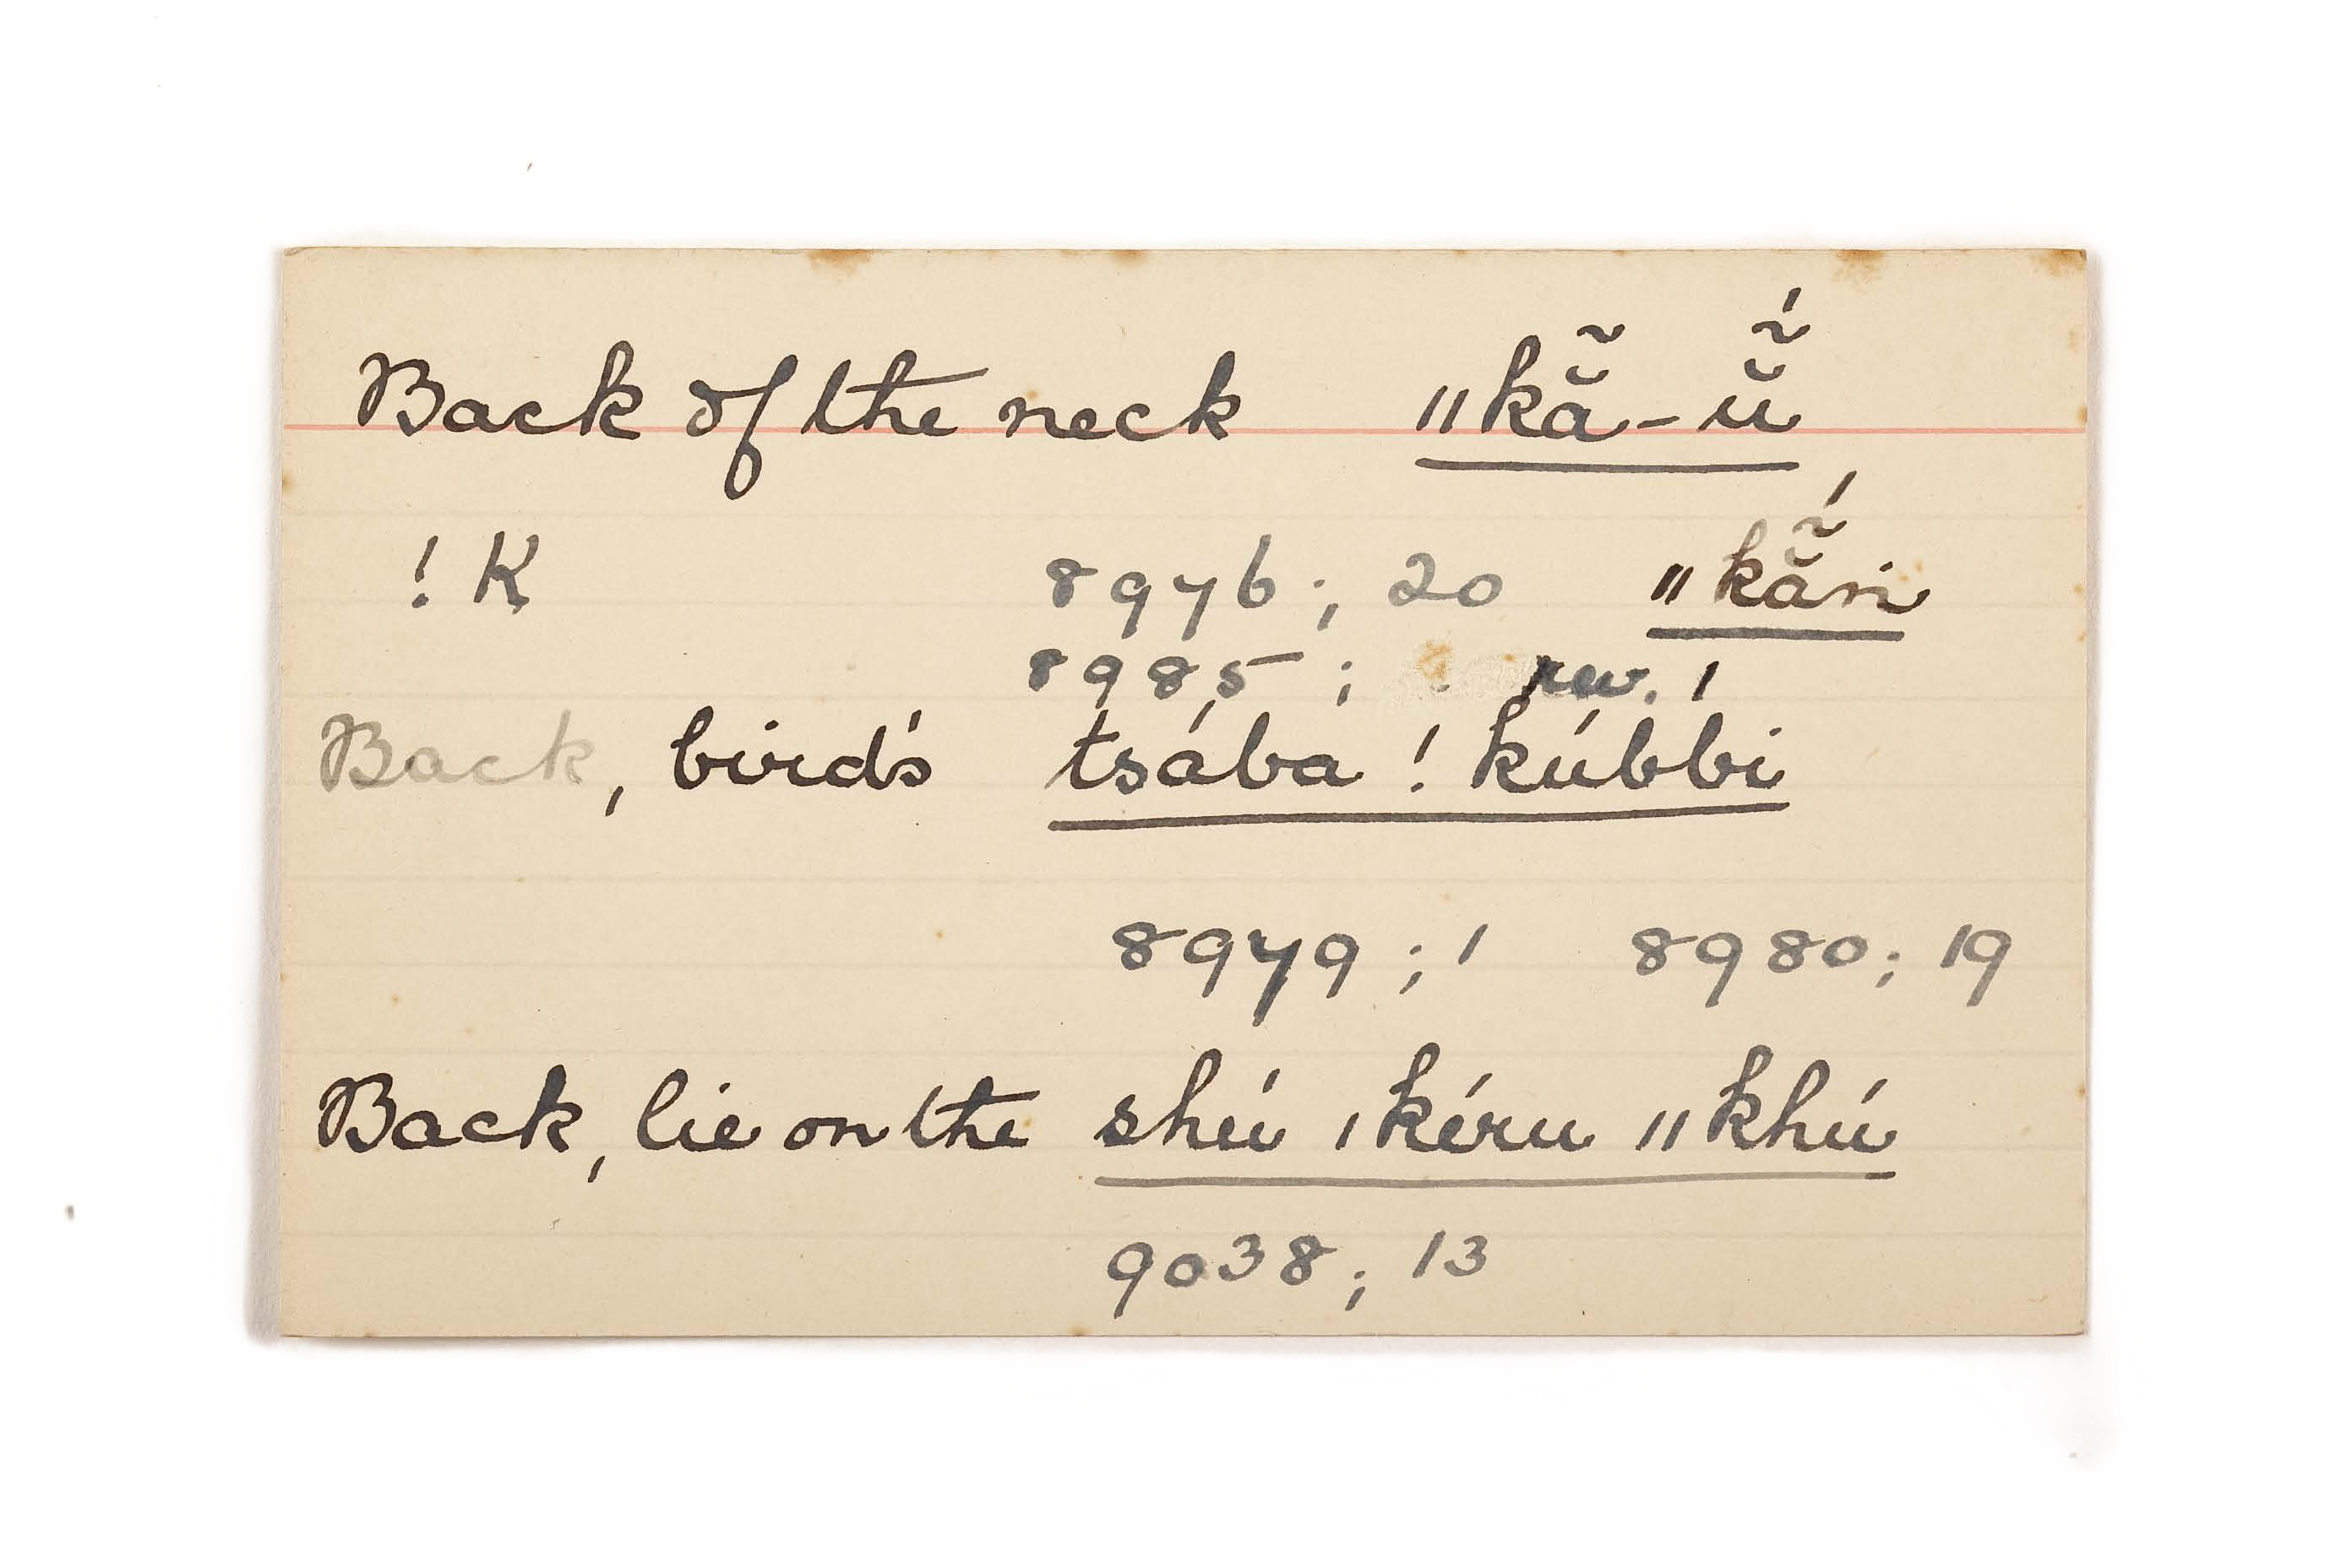 Back of the neck ǁkã̆-ṹ̆
!K 8976; 20 ǁkã̆́ni
8985; rev. 1
Back, bird's tsába !kúbbi
8979; 1 8980; 19
Back, lie on the shú ǀkéru ǁkhú
9038; 13